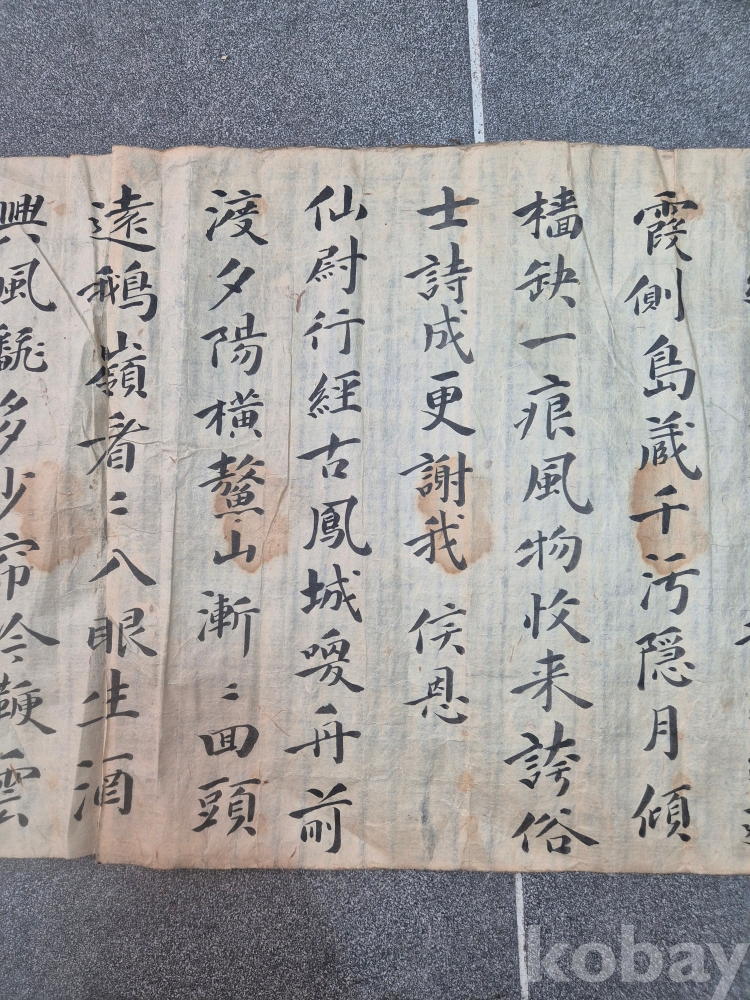 霞側島蔵千污隠月傾
檣缺一痕風物收来誇俗
士詩成更謝我 侯恩
仙尉行經古鳳城喚舟前
渡夕陽橫鰲山漸〻回頭
遠鵝嶺看〻入眼生酒
興風飜多少帘吟鞭雲
kobay